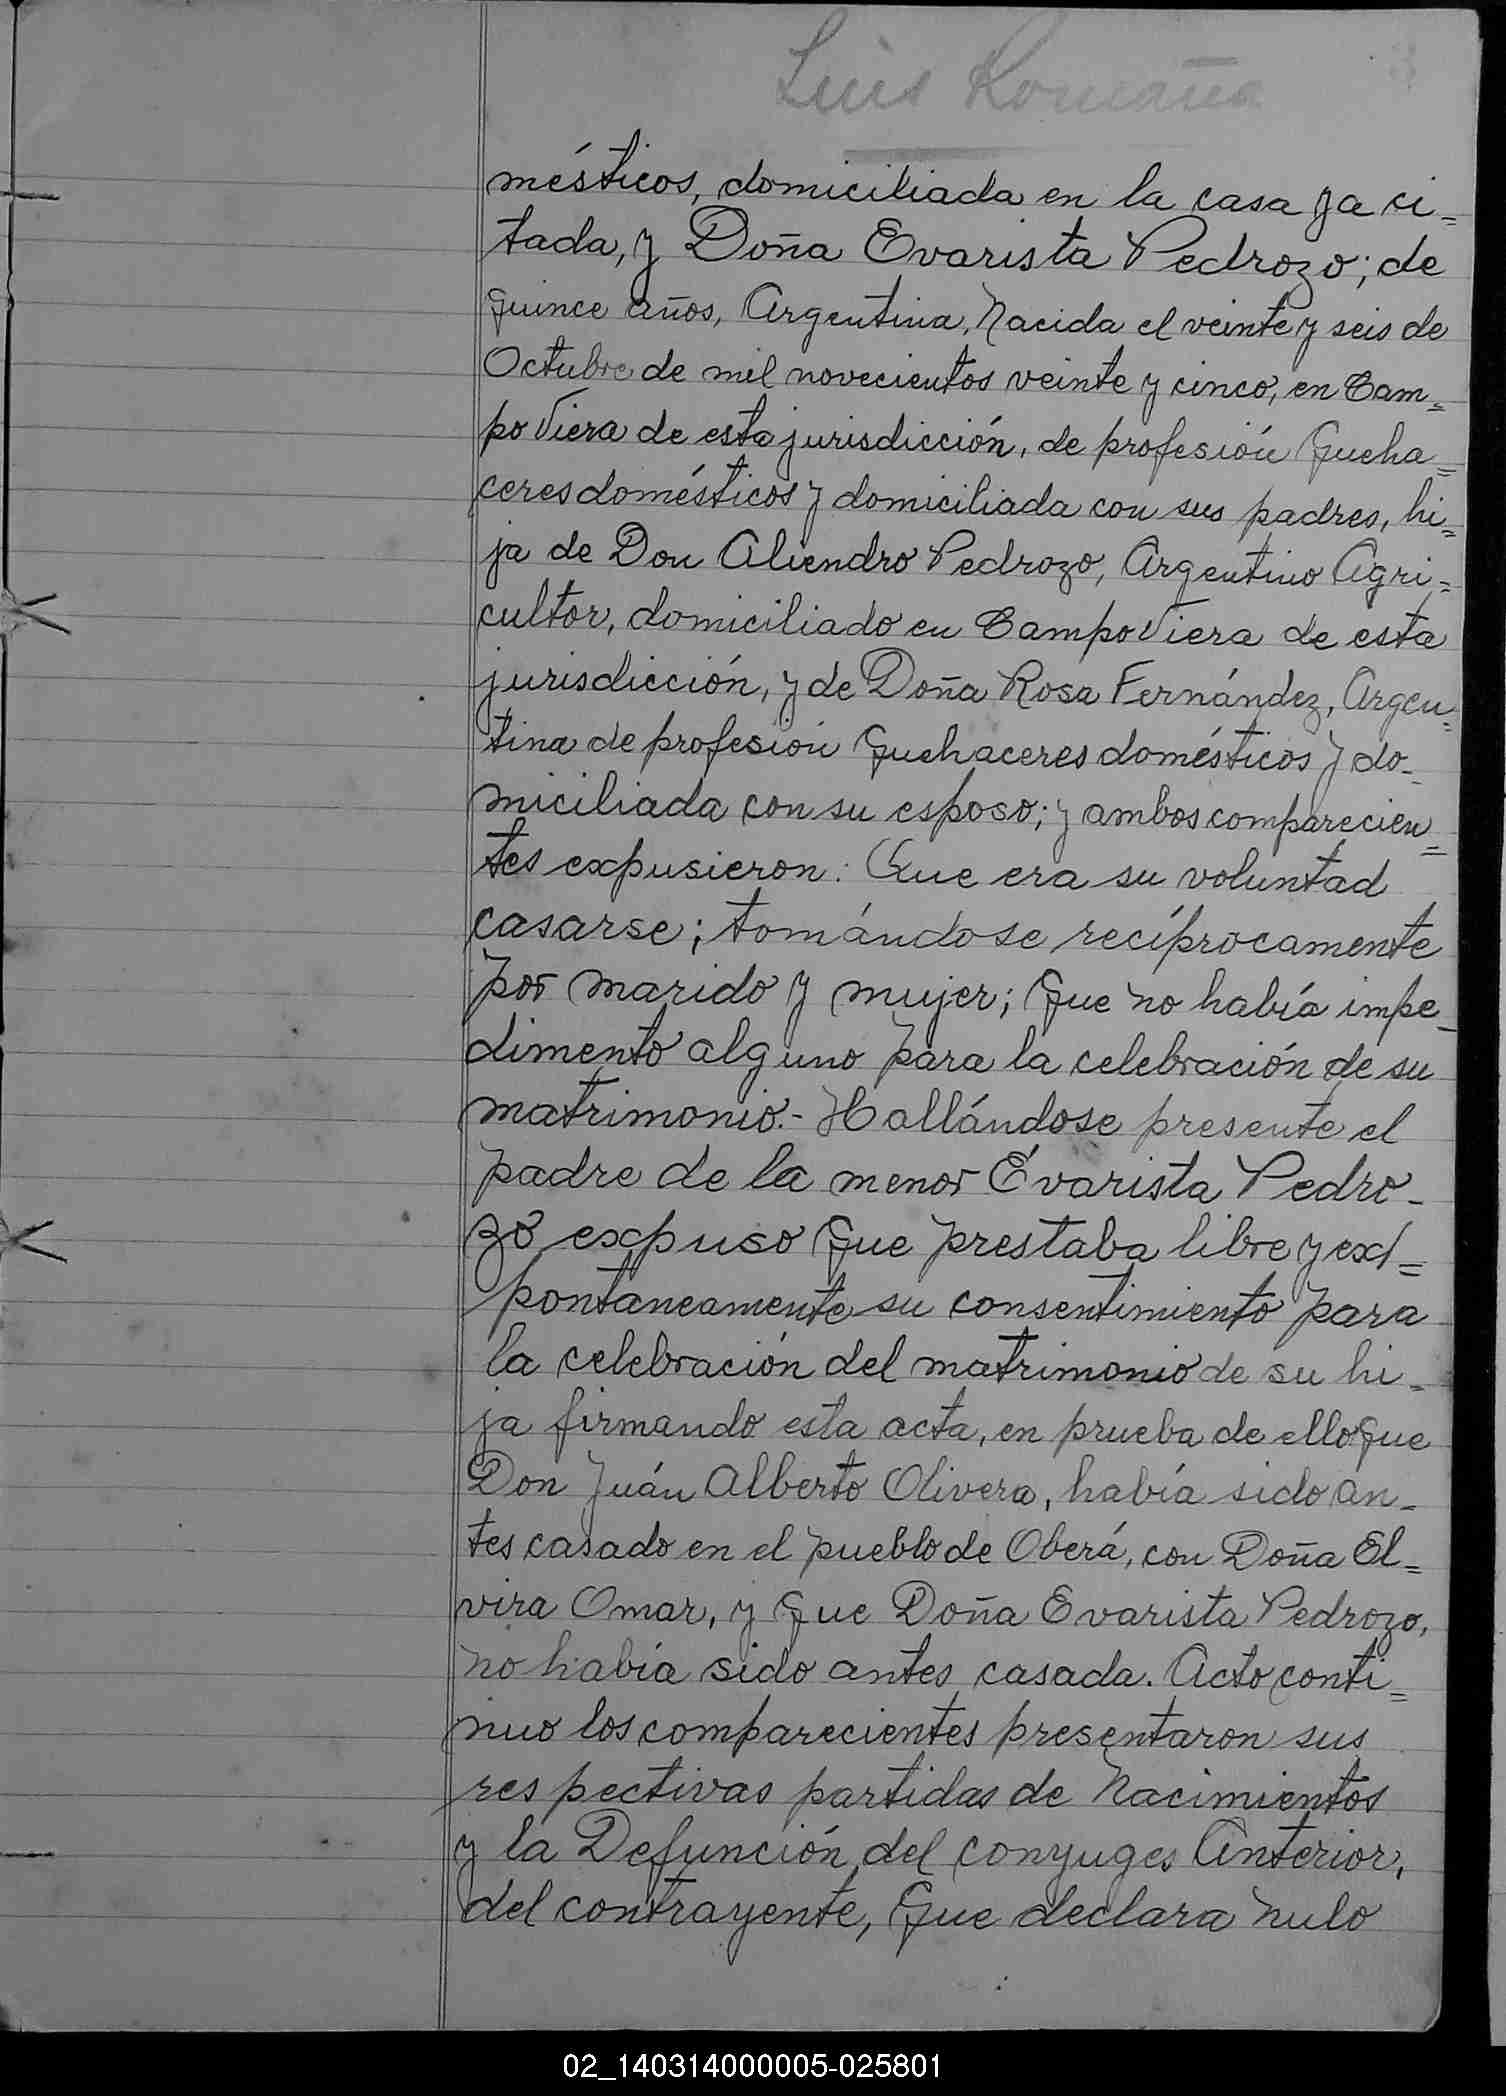 Luis Romaña
3
mésticos, domiciliada en la casa ya ci=
tada, y Doña Evarista Pedrozo; de
quince años, Argentina, Nacida el veinte y seis de
Octubre de mil novecientos veinte y cinco, en Cam=
po Viera de esta jurisdicción, de profesión Queha=
ceres domésticos y domiciliada con sus padres, hi=
ja de Don Aliendro Pedrozo, Argentino Agri=
cultor, domiciliado en Campo Viera de esta
jurisdicción, y de Doña Rosa Fernández, Argen=
tina de profesión Quehaceres domésticos y do-
miciliada con su esposo; y ambos comparecien=
tes expusieron: Que era su voluntad
casarse; tomándose recíprocamente
por marido y mujer; Que no había impe-
dimento alguno para la celebración de su
matrimonio.- Hallándose presente el
padre de la menor Evarista Pedro-
zo expuso Que prestaba libre y exl=
pontaneamente su consentimiento para
la celebración del matrimonio de su hi-
ja firmando esta acta, en prueba de ello Que
Don Juán Alberto Olivera, había sido an-
tes casado en el pueblo de Oberá, con Doña El=
vira Omar, y Que Doña Evarista Pedrozo,
no había sido antes casada. Acto conti=
nuo los comparecientes presentaron sus
respectivas partidas de Nacimientos
y la Defunción del conyuges Anterior,
del contrayente, Que declara nulo
02_140314000005-025801